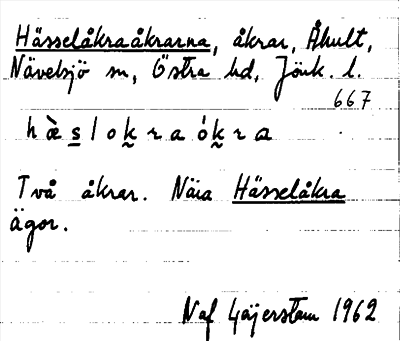 Hässelåkraåkrarna, åkrar, Åhult,
Nävelsjö sn, Östra hd, Jönk. l.
667
h æ̀ s l o k r a ó k r a
Två åkrar. Nära Hässelåkra
ägor.
Naf Gäjerstam 1962